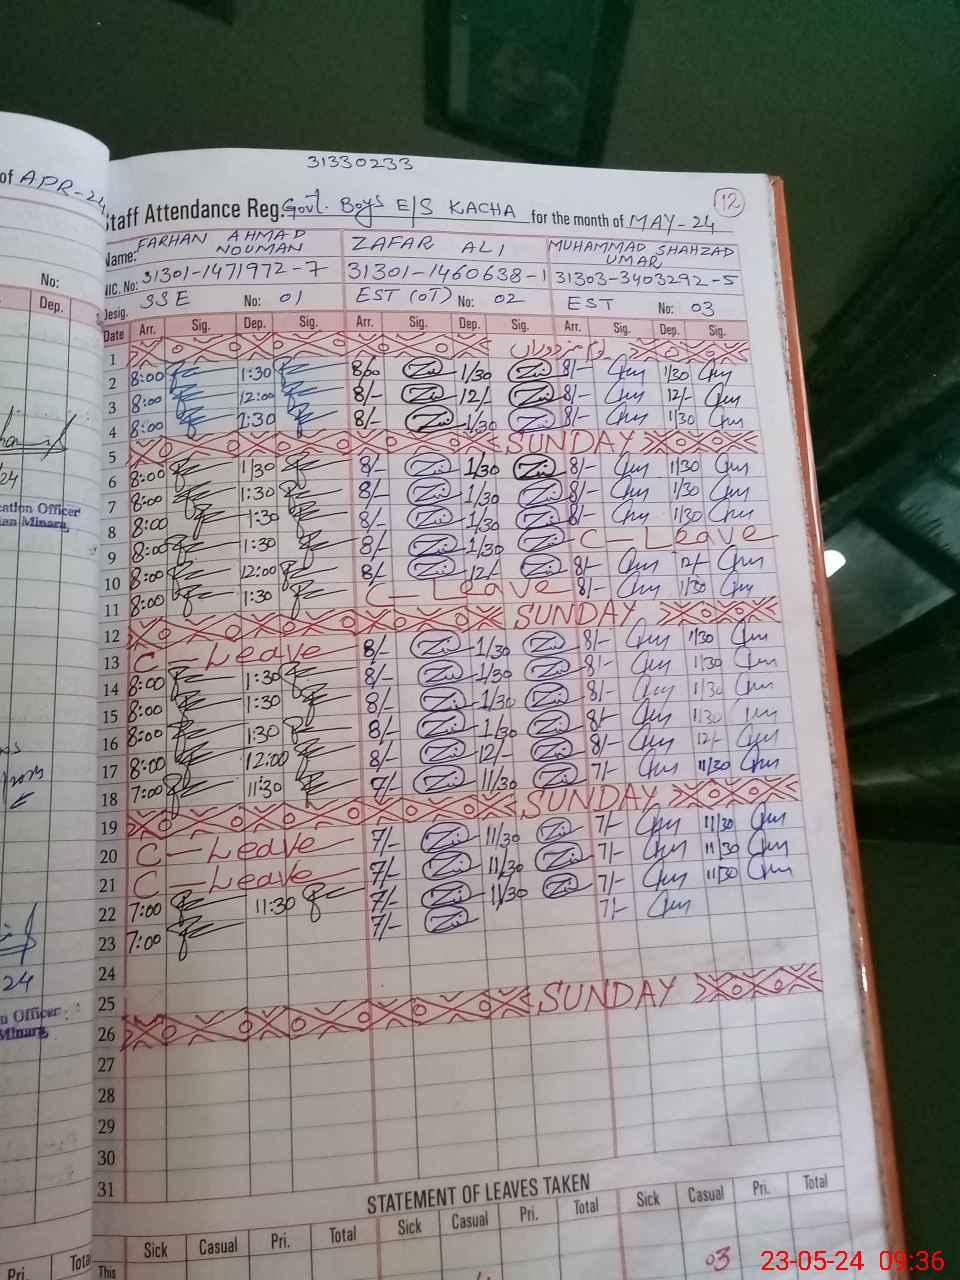 31330233
of APR-24
Staff Attendance Reg. Govt. Boys E/S KACHA for the month of MAY-24
12
Name: FARHAN AHMAD NOUMAN ZAFAR ALI MUHAMMAD SHAHZAD UMAR
NIC. No: 31301-1471972-7 31301-1460638-1 31303-3403292-5
Desig. SSE No: 01 EST (OT) No: 02 EST No: 03
Date Arr. Sig. Dep. Sig. Arr. Sig. Dep. Sig. Arr. Sig. Dep. Sig.
1
2 8:00 1:30 8:00 1/30 8/- 1/30
3 8:00 12:00 8/- 12/- 8/- 12/-
4 8:00 1:30 8/- 1/30 8/- 1/30
5 SUNDAY
6 8:00 1/30 8/- 1/30 8/- 1/30
7 8:00 1:30 8/- 1/30 8/- 1/30
8 8:00 1:30 8/- 1/30 8/- 1/30
9 8:00 1:30 8/- 1/30 C-Leave
10 8:00 12:00 8/- 12/- 8/- 12/-
11 8:00 1:30 C-Leave 8/- 1/30
12 SUNDAY
13 C-Leave 8/- 1/30 8/- 1/30
14 8:00 1:30 8/- 1/30 8/- 1/30
15 8:00 1:30 8/- 1/30 8/- 1/30
16 8:00 1:30 8/- 1/30 8/- 1/30
17 8:00 12:00 8/- 12/- 8/- 12/-
18 7:00 11:30 7/- 11/30 7/- 11/30
19 SUNDAY
20 C-Leave 7/- 11/30 7/- 11/30
21 C-Leave 7/- 11/30 7/- 11/30
22 7:00 11:30 7/- 11/30 7/- 11/30
23 7:00 7/- 7/-
24
25
26 SUNDAY
27
28
29
30
31
STATEMENT OF LEAVES TAKEN
Sick Casual Pri. Total Sick Casual Pri. Total Sick Casual Pri. Total
This 03
No:
Dep.
24
cation Officer
ian Minara
24
n Officer
Minara
Pri. Total
23-05-24 09:36